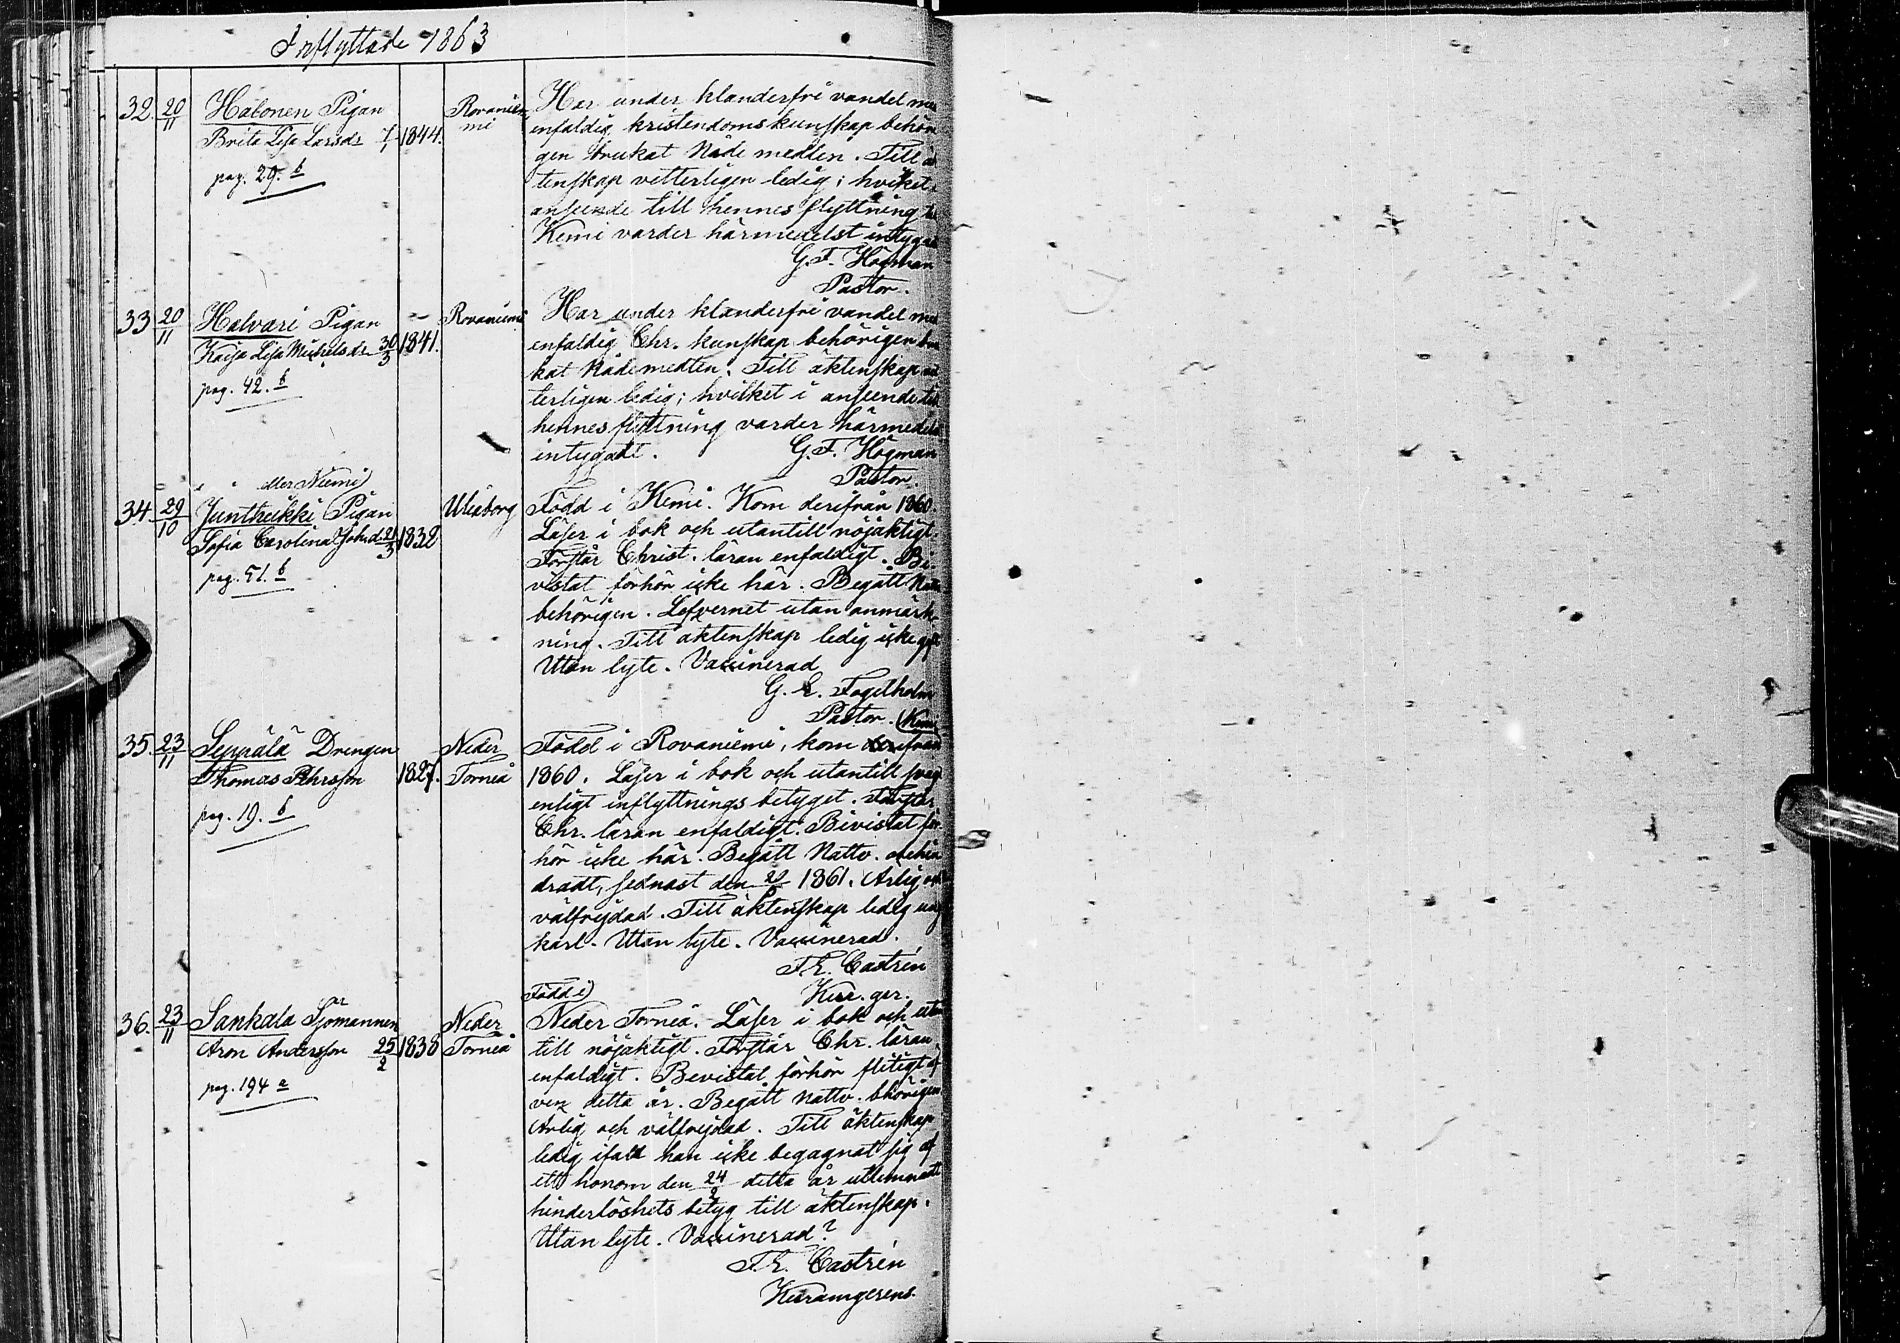 Inflyttade 1863
32. 20/11 Halonen Pigan
Brita Lisa Larsdr 7/1 1844.
pag. 29. b
Rovanie
mi
Har under klanderfri vandel med
enfaldig kristendomskunskap behöri
gen brukat Nådemedlen. Till äk
tenskap vitterligen ledig; hvilket i
anseende till hennes flyttning till
Kemi varder härmedelst intygadt
G. F. Högman
Pastor.
33 20/11 Halvari Pigan
Kaisa Lisa Michelsdr 30/3 1841.
pag. 42. b
Rovaniemi
Har under klanderfri vandel med
enfaldig Chr. kunskap behörigen bru
kat Nådemedlen. Till äktenskap vit
terligen ledig; hvilket i anseende till
hennes flyttning varder härmedelst
intygadt.
G. F. Högman
Pastor.
eller Niemi)
34 29/10 Junthukki Pigan
Sofia Carolina Johsd. 21/3 1832
pag. 51. b
Uleåborg
Född i Kemi. Kom derifrån 1860.
Läser i bok och utantill nöjaktigt.
Förstår Christ. läran enfaldigt. Bi-
vistat förhör icke här. Begått Nattv.
behörigen. Lefvernet utan anmärk
ning. Till äktenskap ledig icke gift
Utan lyte. Vaccinerad
G. E. Fogelholm
Pastor.
35. 23/11 Seppälä Drengen
Thomas Pehrsson 1827.
pag. 19. b
Neder
Torneå
Född i Rovaniemi, kom derifrån
1860. Läser i bok och utantill svag
enligt inflyttnings betyget. Förstår
Chr. läran enfaldigt. Bivistat för
hör icke här. Begått Nattv. ohin
dradt, sednast den 1861. Ärlig och
välfrejdad. Till äktenskap ledig ung
karl. Utan lyte. Vaccinerad.
F. E. Castrén
Kur. ger.
36. 23/11 Sankala Sjömannen
Aron Andersson 25/2 1838
pag. 194 a
Neder
Torneå
Född i)
Neder Torneå. Läser i bok och utan
till nöjaktigt. Förstår Chr. läran
enfaldigt. Bevistat förhör flitigt äf
ven detta år. Begått Nattv. behörigen
Ärlig och välfrejdad. Till äktenskap
ledig ifall han icke begagnat sig af
ett honom den 24/2 detta år utlemnadt
hinderlöshets betyg till äktenskap.
Utan lyte. Vaccinerad?
F. E. Castrén